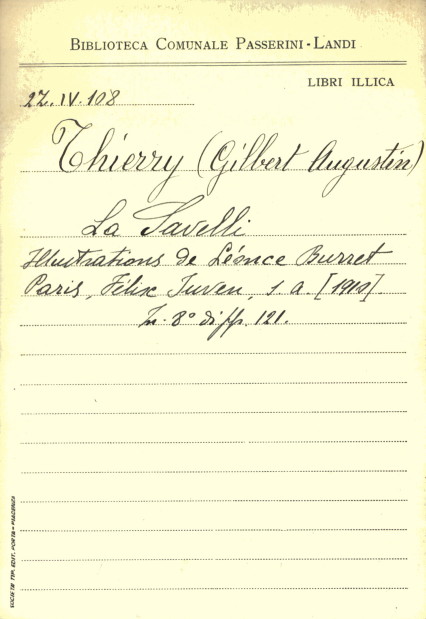 BIBLIOTECA COMUNALE PASSERINI-LANDI
LIBRI ILLICA
2Z.IV.108
Thierry (Gilbert Augustin)
La Savelli
Illustrations de Léonce Burret
Paris, Félix Juven, s. a. [1910].
In. 8° di pp. 121.
SOCIETÀ TIP. EDIT. PORTA - PIACENZA